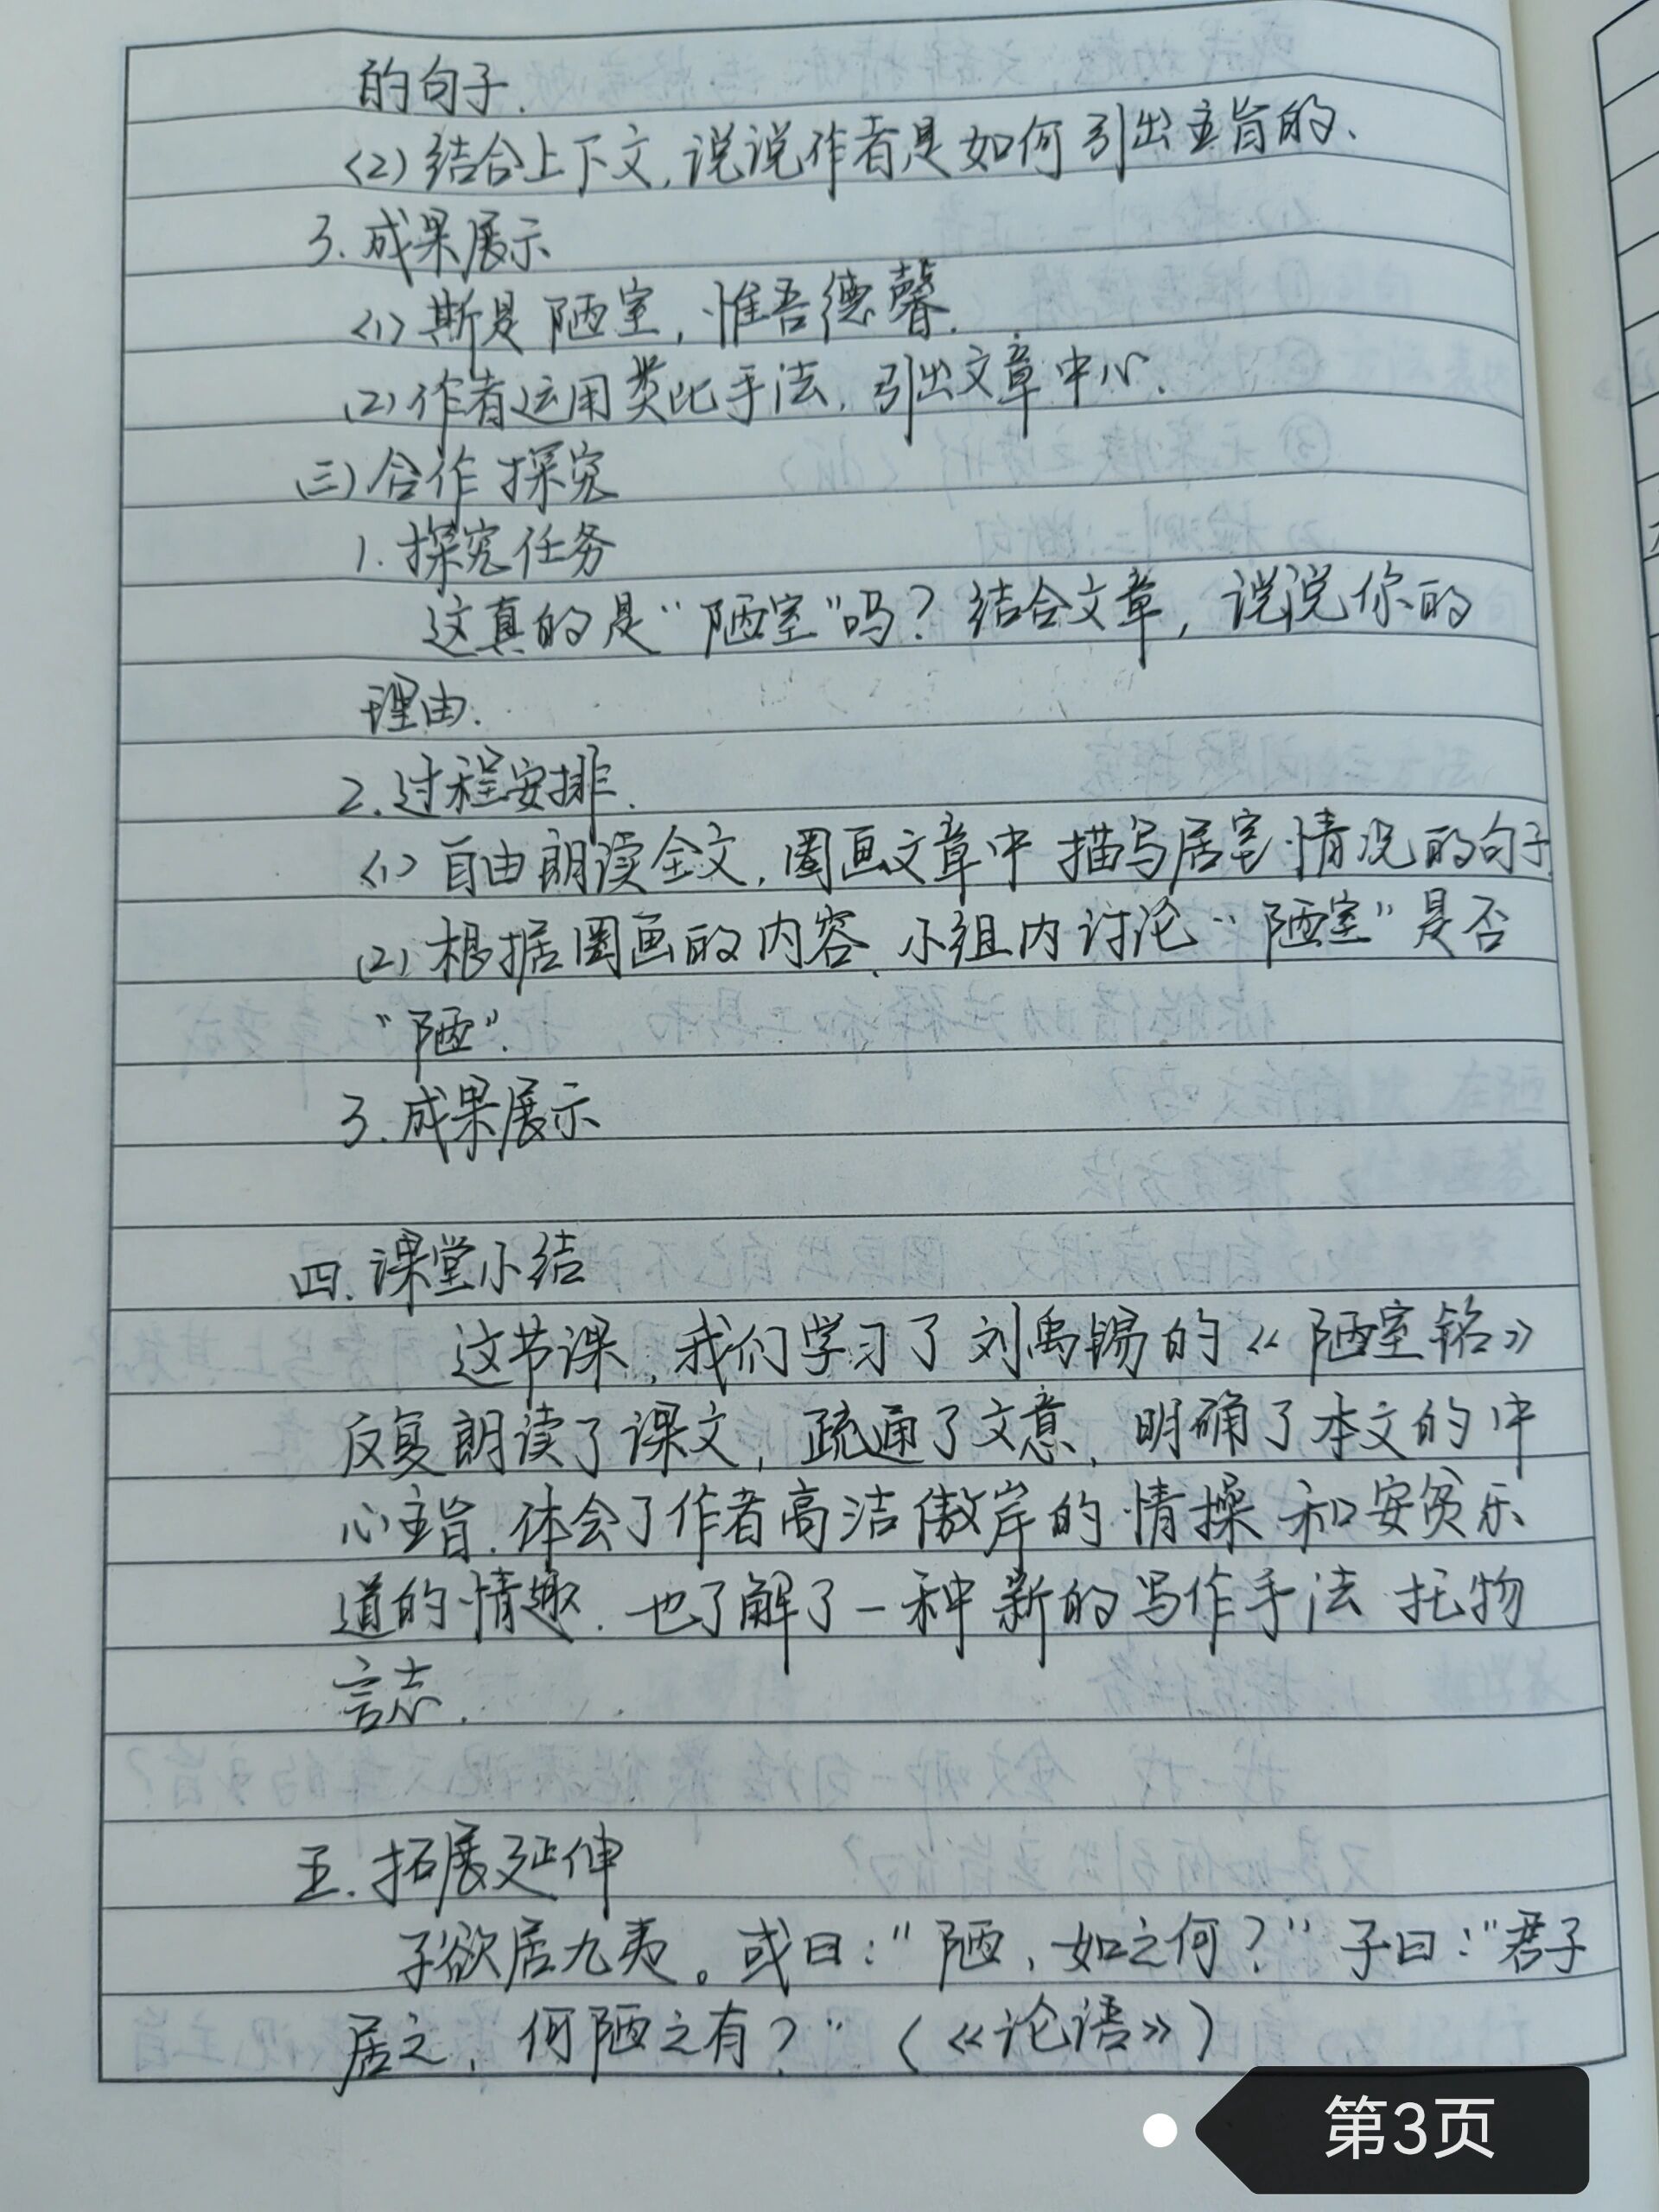 的句子.
(2) 结合上下文, 说说作者是如何引出主旨的.
3. 成果展示
(1) 斯是陋室, 惟吾德馨.
(2) 作者运用类比手法, 引出文章中心.
(三) 合作探究
1. 探究任务
这真的是“陋室”吗? 结合文章, 说说你的
理由.
2. 过程安排.
(1) 自由朗读全文, 圈画文章中描写居室情况的句子.
(2) 根据圈画的内容, 小组内讨论“陋室”是否
“陋”.
3. 成果展示
四. 课堂小结
这节课, 我们学习了刘禹锡的《陋室铭》
反复朗读了课文, 疏通了文意, 明确了本文的中
心主旨. 体会了作者高洁傲岸的情操和安贫乐
道的情趣. 也了解了一种新的写作手法 托物
言志.
五. 拓展延伸
子欲居九夷。或曰:“陋, 如之何?”子曰:“君子
居之, 何陋之有?”(《论语》)
第3页